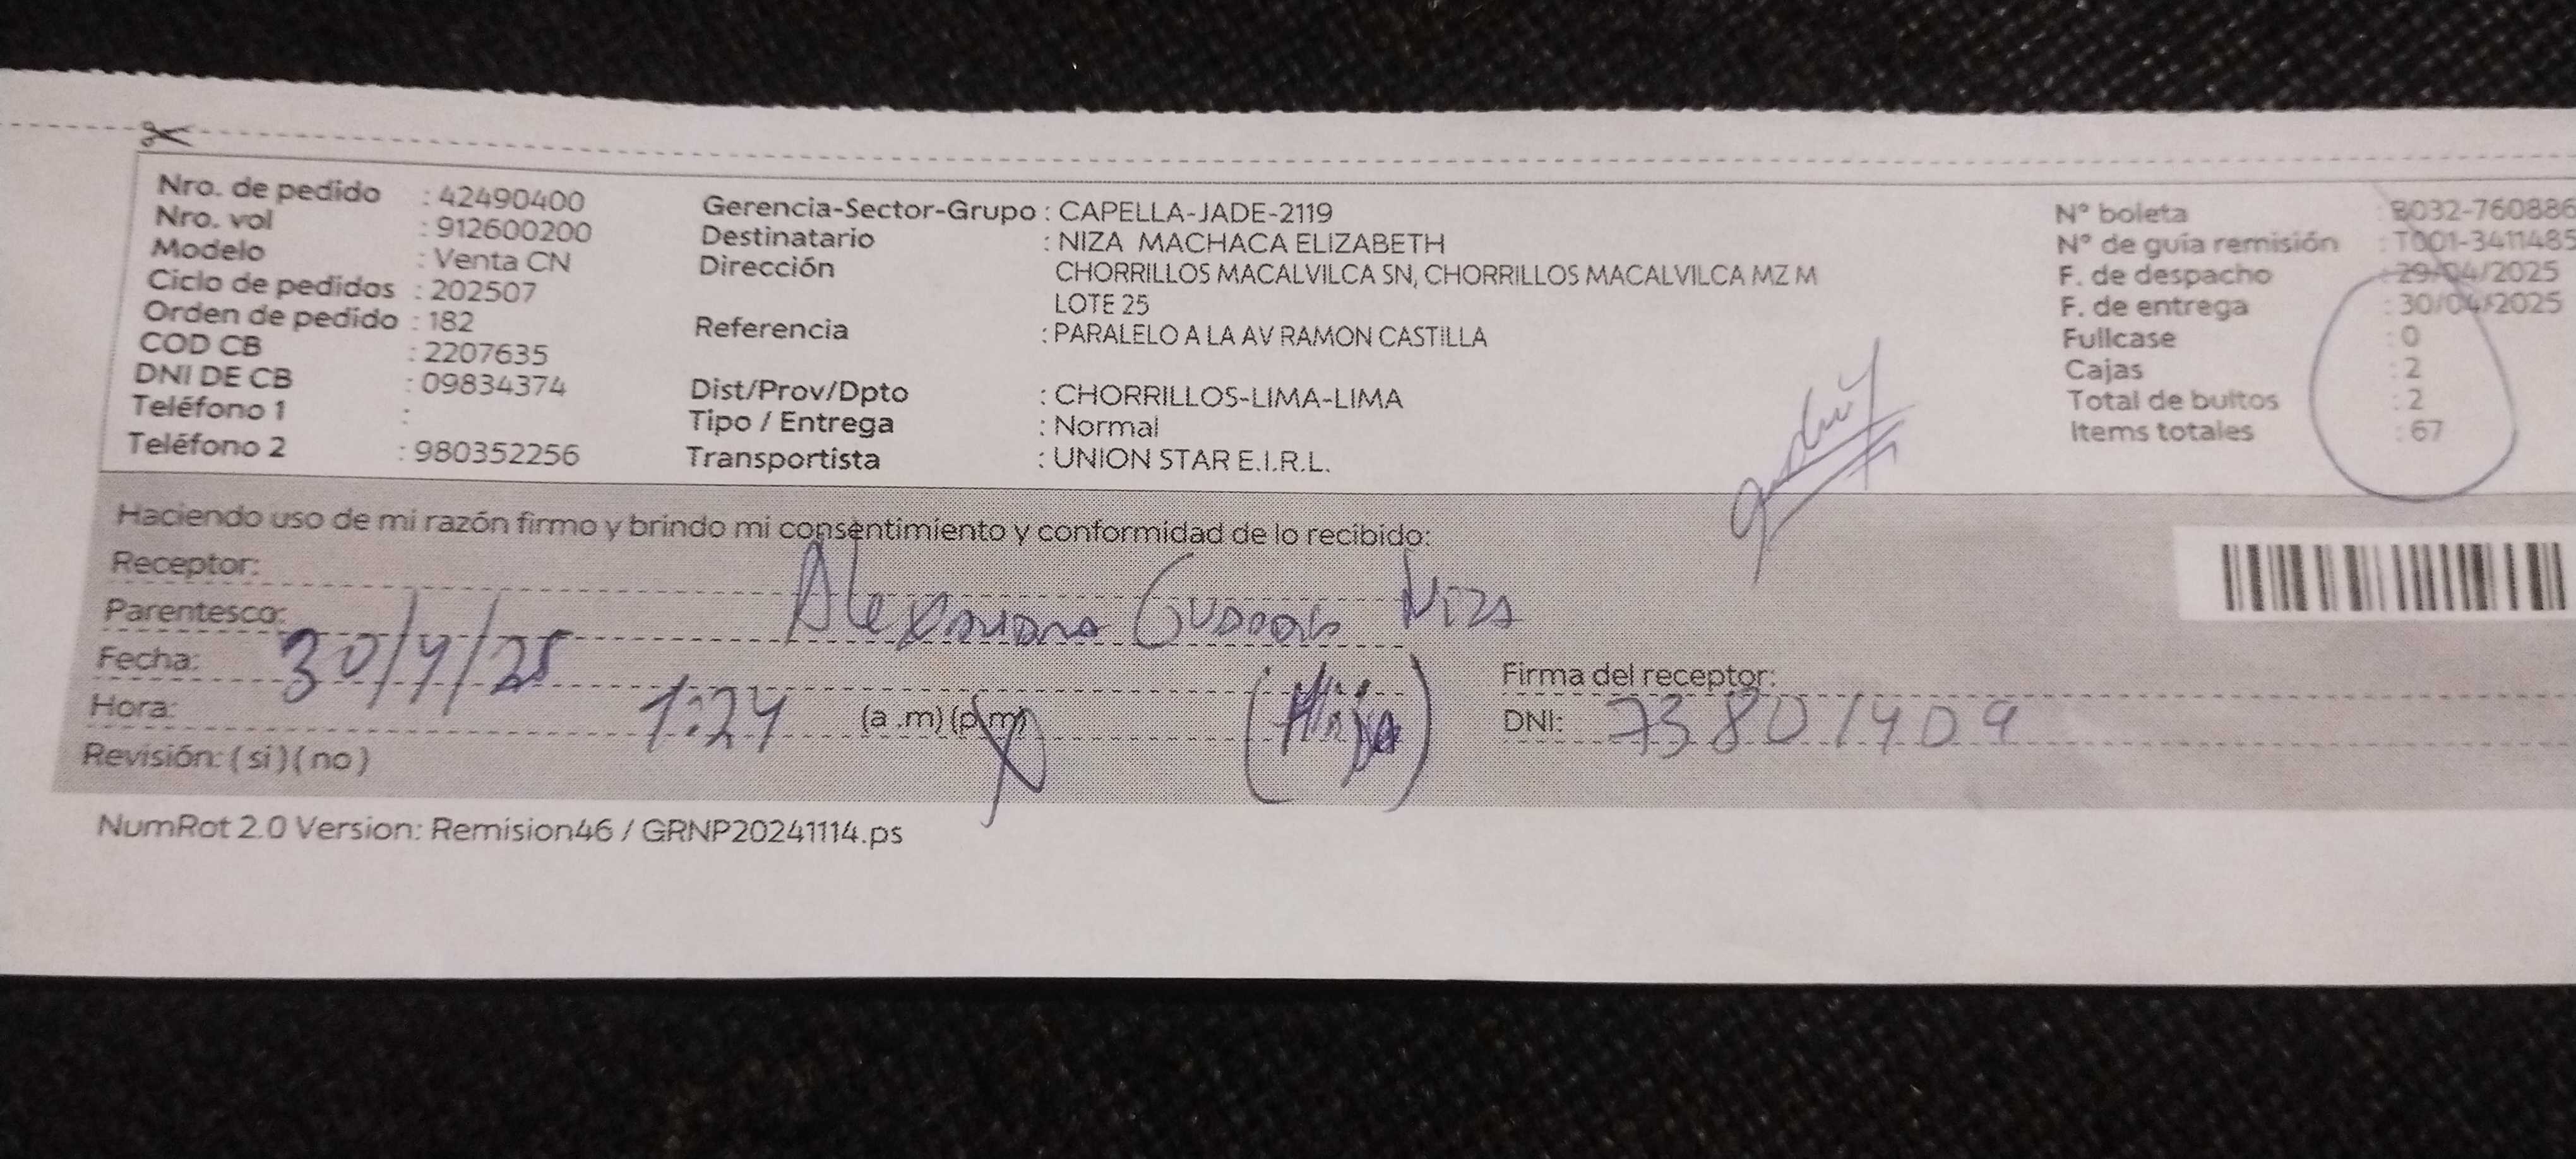 Nro. de pedido : 42490400
Nro. vol : 912600200
Modelo : Venta CN
Ciclo de pedidos : 202507
Orden de pedido : 182
COD CB : 2207635
DNI DE CB : 09834374
Teléfono 1 :
Teléfono 2 : 980352256
Gerencia-Sector-Grupo : CAPELLA-JADE-2119
Destinatario : NIZA MACHACA ELIZABETH
Dirección CHORRILLOS MACALVILCA SN, CHORRILLOS MACALVILCA MZ M
LOTE 25
Referencia : PARALELO A LA AV RAMON CASTILLA
Dist/Prov/Dpto : CHORRILLOS-LIMA-LIMA
Tipo / Entrega : Normal
Transportista : UNION STAR E.I.R.L.
Nº boleta : B032-760886
Nº de guía remisión : T001-3411485
F. de despacho : 29/04/2025
F. de entrega : 30/04/2025
Fullcase : 0
Cajas : 2
Total de bultos : 2
Items totales : 67
Haciendo uso de mi razón firmo y brindo mi consentimiento y conformidad de lo recibido:
Receptor:
Parentesco: Niza
Fecha: 30/4/25
Hora: 1:24 (a .m) (p.m) (Hija)
Revisión: ( si ) ( no )
Firma del receptor:
DNI: 73801409
NumRot 2.0 Version: Remision46 / GRNP20241114.ps